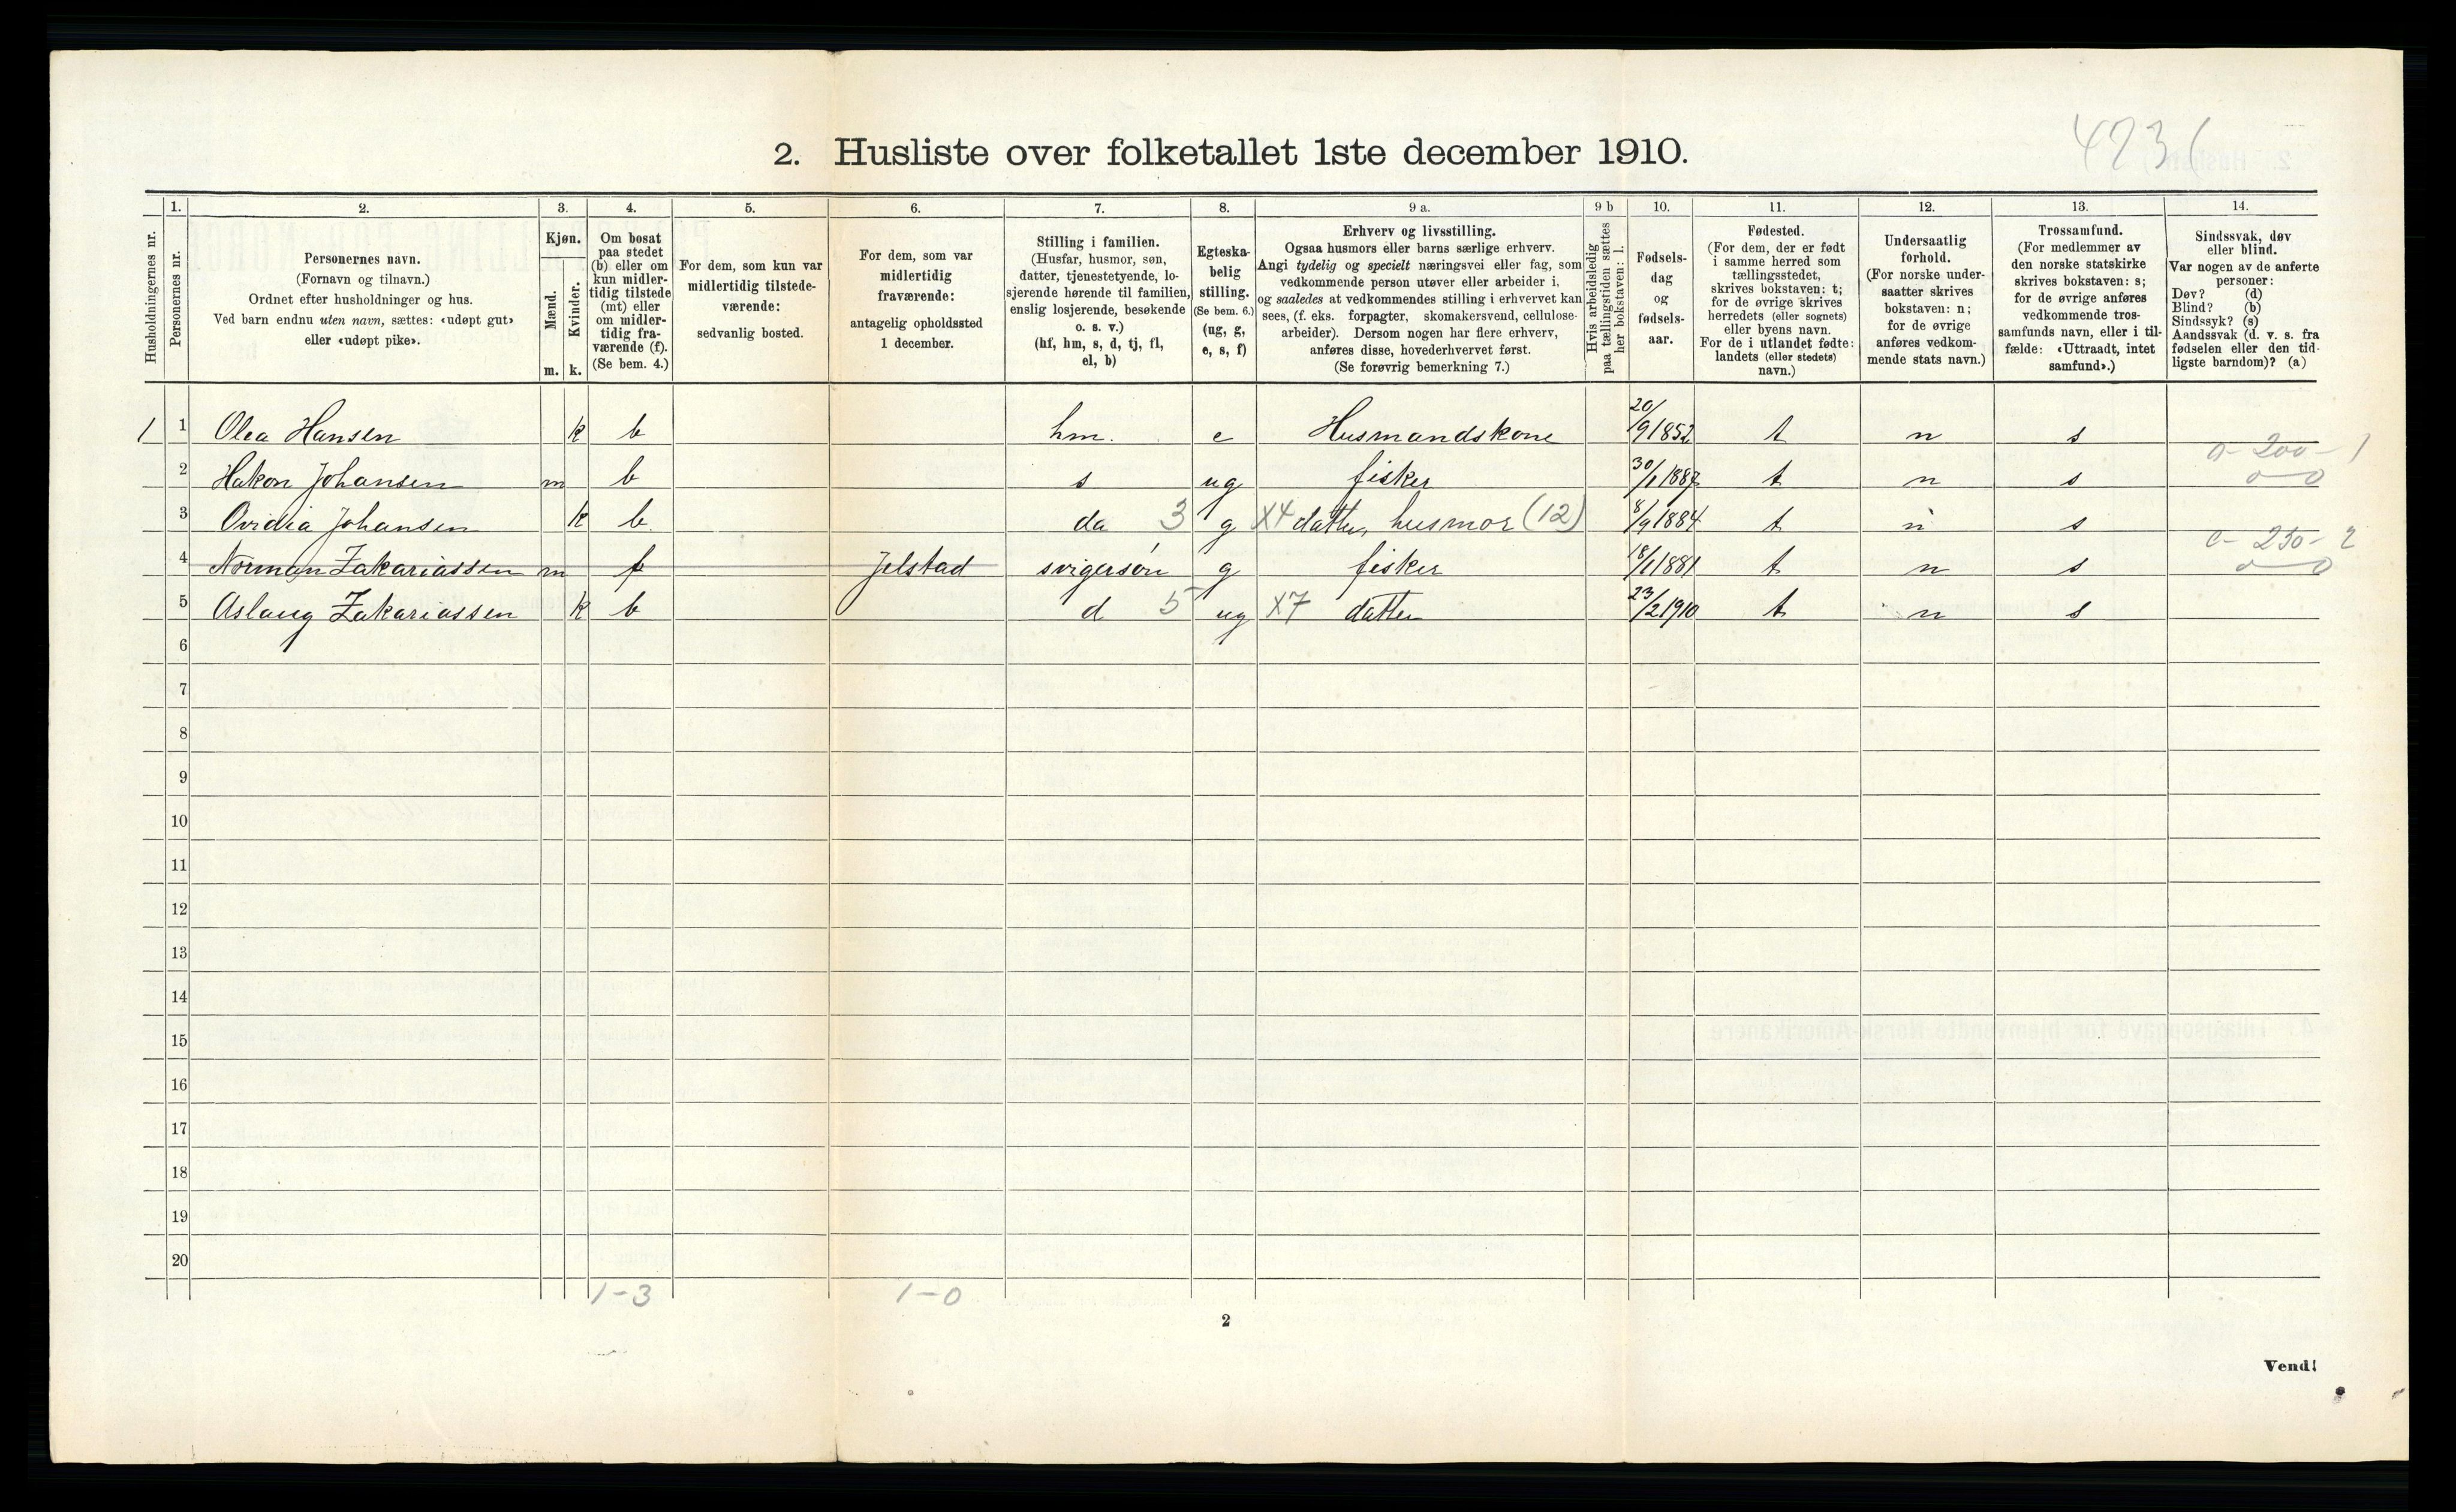 4236
2. Husliste over folketallet 1ste december 1910.
Husholdningernes nr.
1.
Personernes nr.
2.
Personernes navn.
(Fornavn og tilnavn.)
Ordnet efter husholdninger og hus.
Ved barn endnu uten navn, sættes: «udøpt gut»
eller «udøpt pike».
3.
Kjøn.
Mænd.
Kvinder.
m. k.
4.
Om bosat
paa stedet
(b) eller om
kun midler-
tidig tilstede
(mt) eller
om midler-
tidig fra-
værende (f).
(Se bem. 4.)
5.
For dem, som kun var
midlertidig tilstede-
værende:
sedvanlig bosted.
6.
For dem, som var
midlertidig
fraværende:
antagelig opholdssted
1 december.
7.
Stilling i familien.
(Husfar, husmor, søn,
datter, tjenestetyende, lo-
sjerende hørende til familien,
enslig losjerende, besøkende
o. s. v.)
(hf, hm, s, d, tj, fl,
el, b)
8.
Egteska-
belig
stilling.
(Se bem. 6.)
(ug, g,
e, s, f)
9 a.
Erhverv og livsstilling.
Ogsaa husmors eller barns særlige erhverv.
Angi tydelig og specielt næringsvei eller fag, som
vedkommende person utøver eller arbeider i,
og saaledes at vedkommendes stilling i erhvervet kan
sees, (f. eks. forpagter, skomakersvend, cellulose-
arbeider). Dersom nogen har flere erhverv,
anføres disse, hovederhvervet først.
(Se forøvrig bemerkning 7.)
9 b
Hvis arbeidsledig
paa tællingstiden sættes
her bokstaven: l.
10.
Fødsels-
dag
og
fødsels-
aar.
11.
Fødested.
(For dem, der er født
i samme herred som
tællingsstedet,
skrives bokstaven: t;
for de øvrige skrives
herredets (eller sognets)
eller byens navn.
For de i utlandet fødte:
landets (eller stedets)
navn.)
12.
Undersaatlig
forhold.
(For norske under-
saatter skrives
bokstaven: n;
for de øvrige
anføres vedkom-
mende stats navn.)
13.
Trossamfund.
(For medlemmer av
den norske statskirke
skrives bokstaven: s;
for de øvrige anføres
vedkommende tros-
samfunds navn, eller i til-
fælde: «Uttraadt, intet
samfund».)
14.
Sindssvak, døv
eller blind.
Var nogen av de anførte
personer:
Døv? (d)
Blind? (b)
Sindssyk? (s)
Aandssvak (d. v. s. fra
fødselen eller den tid-
ligste barndom)? (a)
1 1 Olea Hansen k b hm. e Husmandskone 20/9 1852 t n s
2 Hakon Johansen m b s ug fisker 30/1 1887 t n s 0-200-1 0-0
3 Ovidia Johansen k b da 3 g X4 datter, husmor (12) 8/9 1884 t n s
4 Norman Zakariassen m f Jelstad svigersøn g fisker 18/1 1881 t n s c-250-2 0-0
5 Aslaug Zakariassen k b d 5 ug X7 datter 23/2 1910 t n s
6
7
8
9
10
11
12
13
14
15
16
17
18
19
20
1-3 1-0
2
Vend!